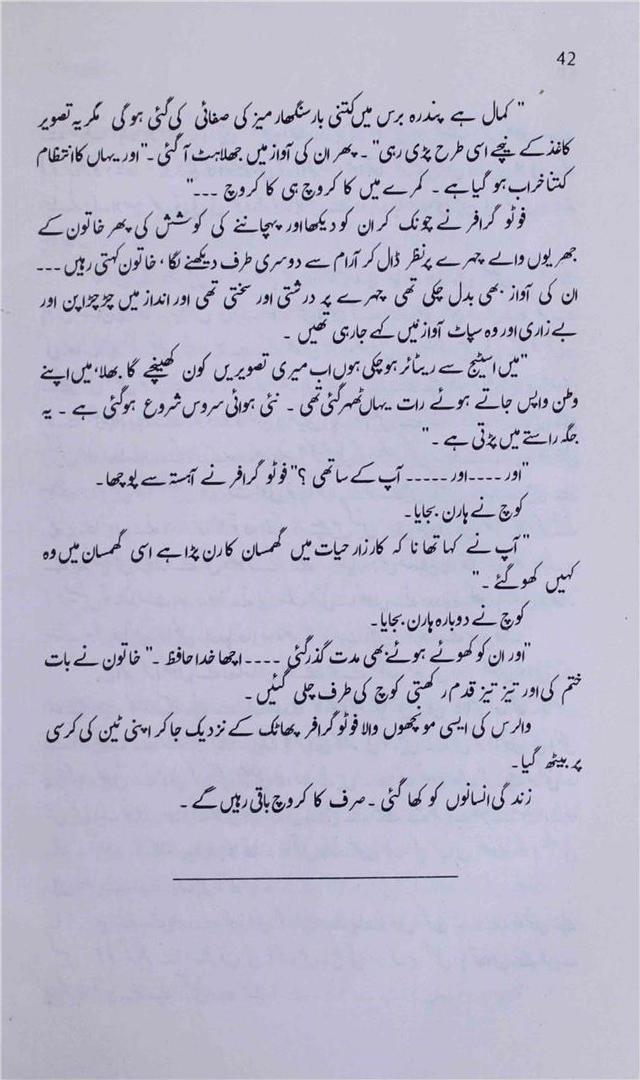 42
" کمال ہے پندرہ برس میں کتنی بار سنگھار میز کی صفائی کی گئی ہوگی مگر یہ تصویر
کاغذ کے نیچے اسی طرح پڑی رہی"۔ پھر ان کی آواز میں جھلاہٹ آ گئی۔"اور یہاں کا انتظام
کتنا خراب ہو گیا ہے۔ کمرے میں کا کروچ ہی کا کروچ ---"
فوٹو گرافر نے چونک کر ان کو دیکھا اور پہچاننے کی کوشش کی پھر خاتون کے
جھریوں والے چہرے پر نظر ڈال کر آرام سے دوسری طرف دیکھنے لگا، خاتون کہتی رہیں ---
ان کی آواز بھی بدل چکی تھی چہرے پر درشتی اور سختی تھی اور انداز میں چڑچڑاپن اور
بے زاری اور وہ سپاٹ آواز میں کہے جا رہی تھیں ۔
"میں اسٹیج سے ریٹائر ہو چکی ہوں اب میری تصویریں کون کھینچے گا بھلا، میں اپنے
وطن واپس جاتے ہوئے رات یہاں ٹھہر گئی تھی ۔ نئی ہوائی سروس شروع ہوگئی ہے ۔ یہ
جگہ راستے میں پڑتی ہے ۔"
"اور ----اور ----- آپ کے ساتھی ؟" فوٹو گرافر نے آہستہ سے پوچھا۔
کوچ نے ہارن بجایا۔
" آپ نے کہا تھا نا کہ کارزار حیات میں گھمسان کا رن پڑا ہے اسی گھمسان میں وہ
کہیں کھو گئے ۔"
کوچ نے دوبارہ ہارن بجایا۔
"اور ان کو کھوئے ہوئے بھی مدت گذر گئی ---- اچھا خدا حافظ ۔" خاتون نے بات
ختم کی اور تیز تیز قدم رکھتی کوچ کی طرف چلی گئیں ۔
والرس کی ایسی مونچھوں والا فوٹو گرافر پھاٹک کے نزدیک جا کر اپنی ٹین کی کرسی
پر بیٹھ گیا۔
زندگی انسانوں کو کھا گئی ۔ صرف کا کروچ باقی رہیں گے ۔